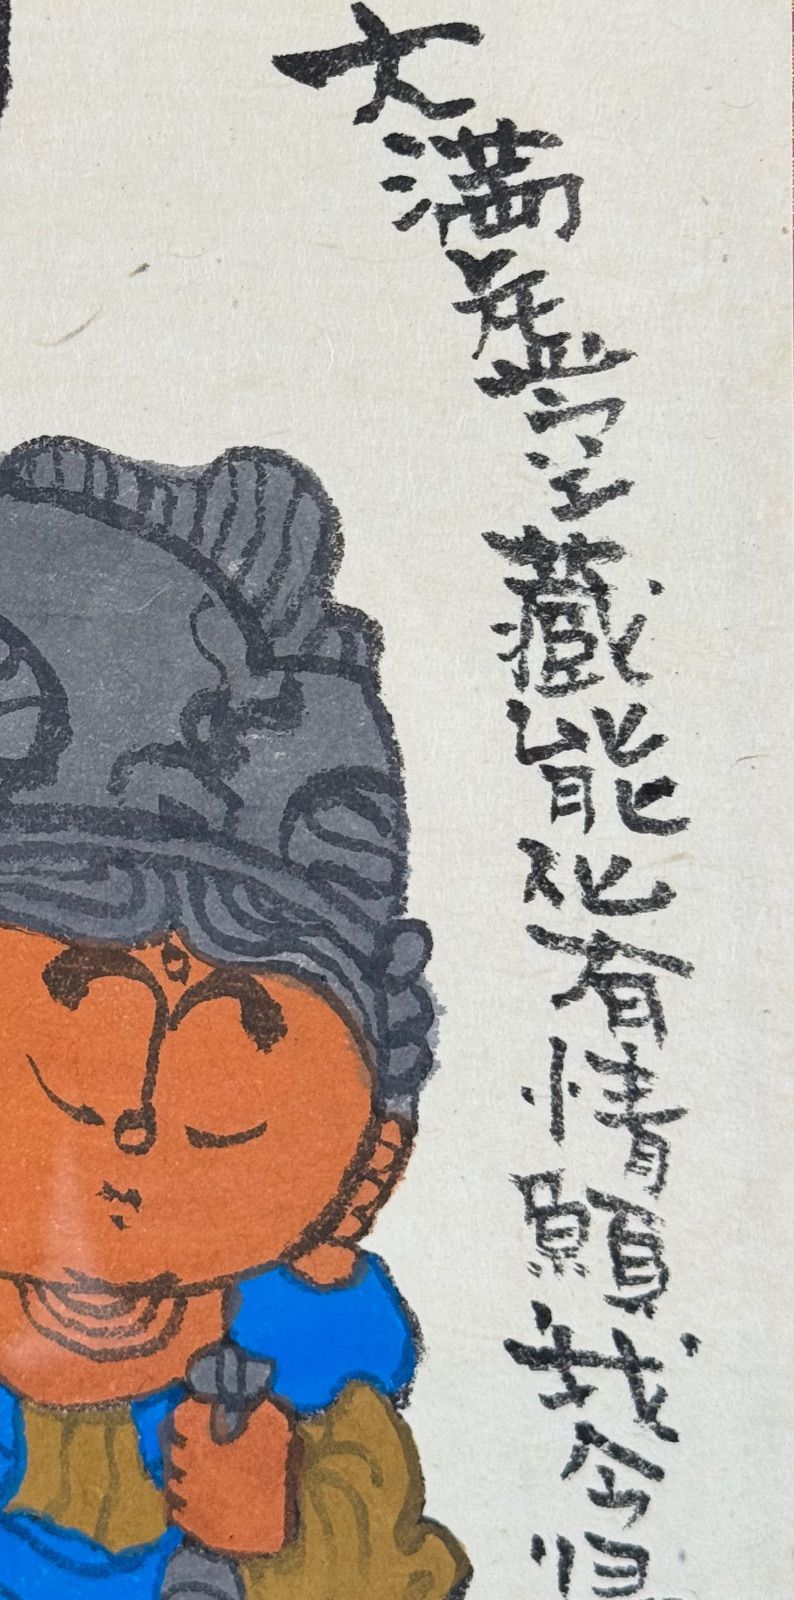 大満虚空藏能化有情願我今帰